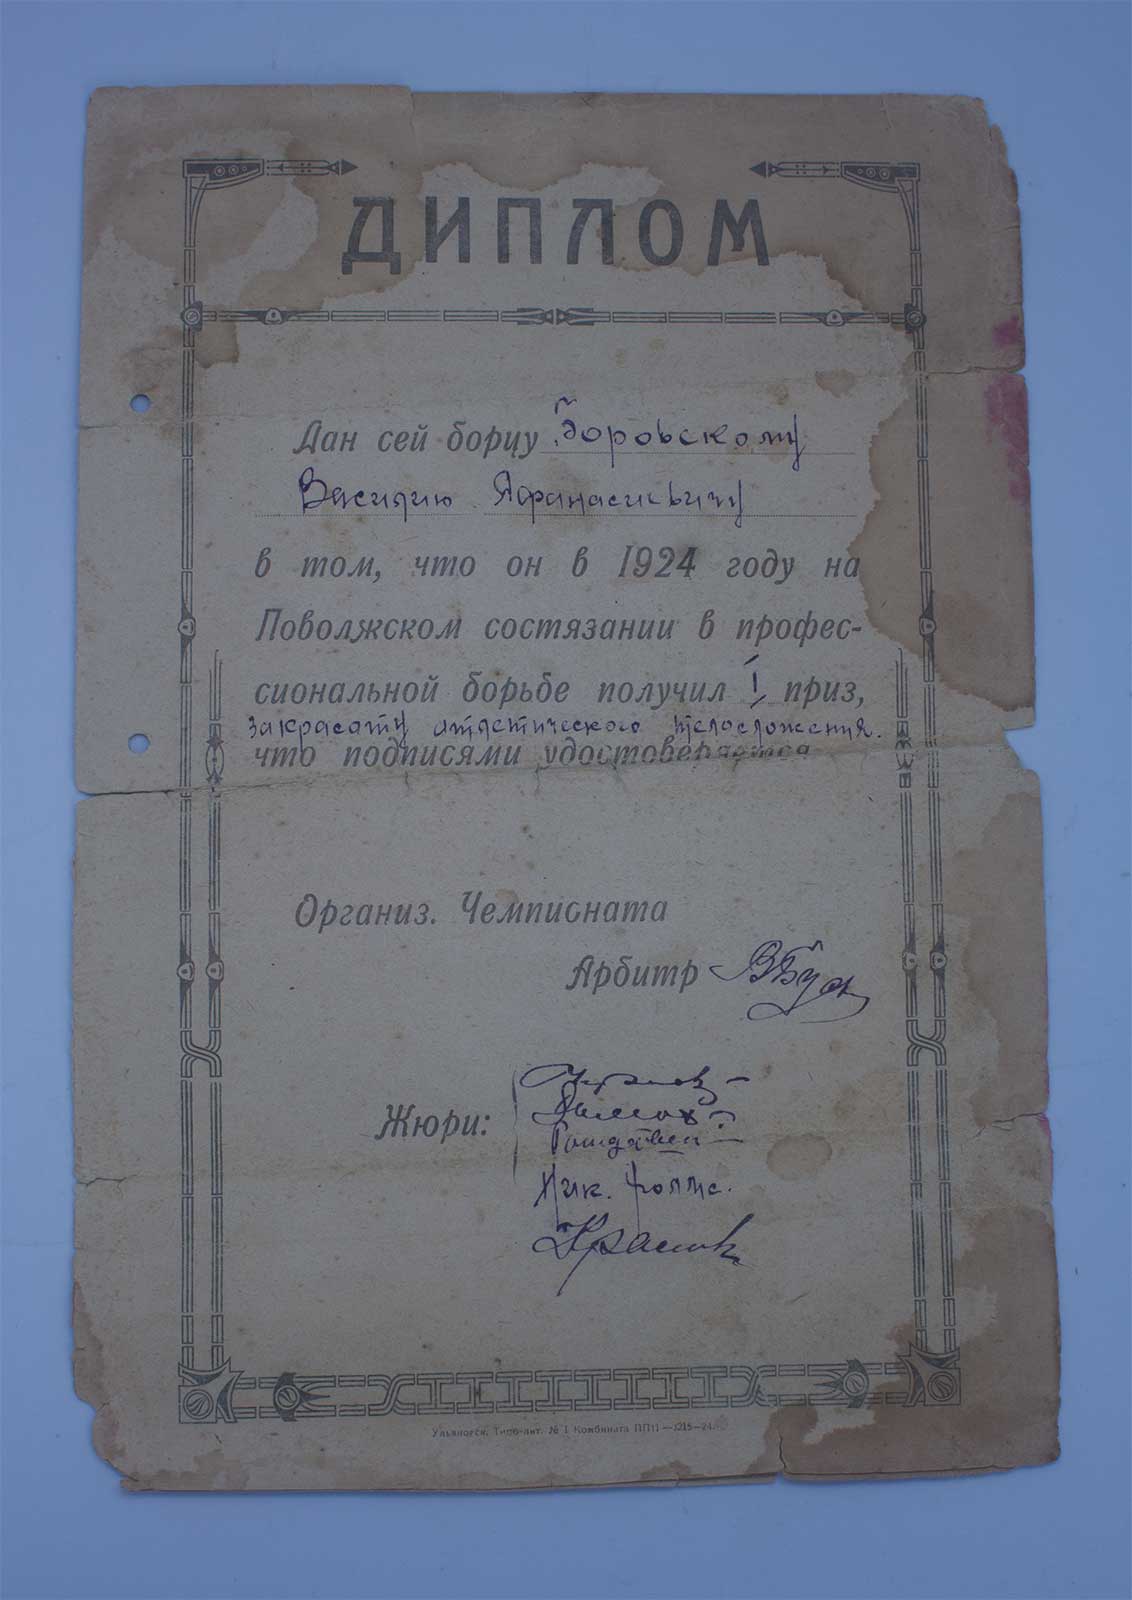 ДИПЛОМ
Дан сей борцу Боровскому
Василию Афанасиевичу
в том, что он в 1924 году на
Поволжском состязании в профес-
сиональной борьбе получил I приз,
за красоту атлетического телосложения.
что подписями удостоверяется
Организ. Чемпионата
Арбитр
Жюри:
Ник.
Ульяновск, Типо-лит. № 1 Комбината ППП —1215—24.